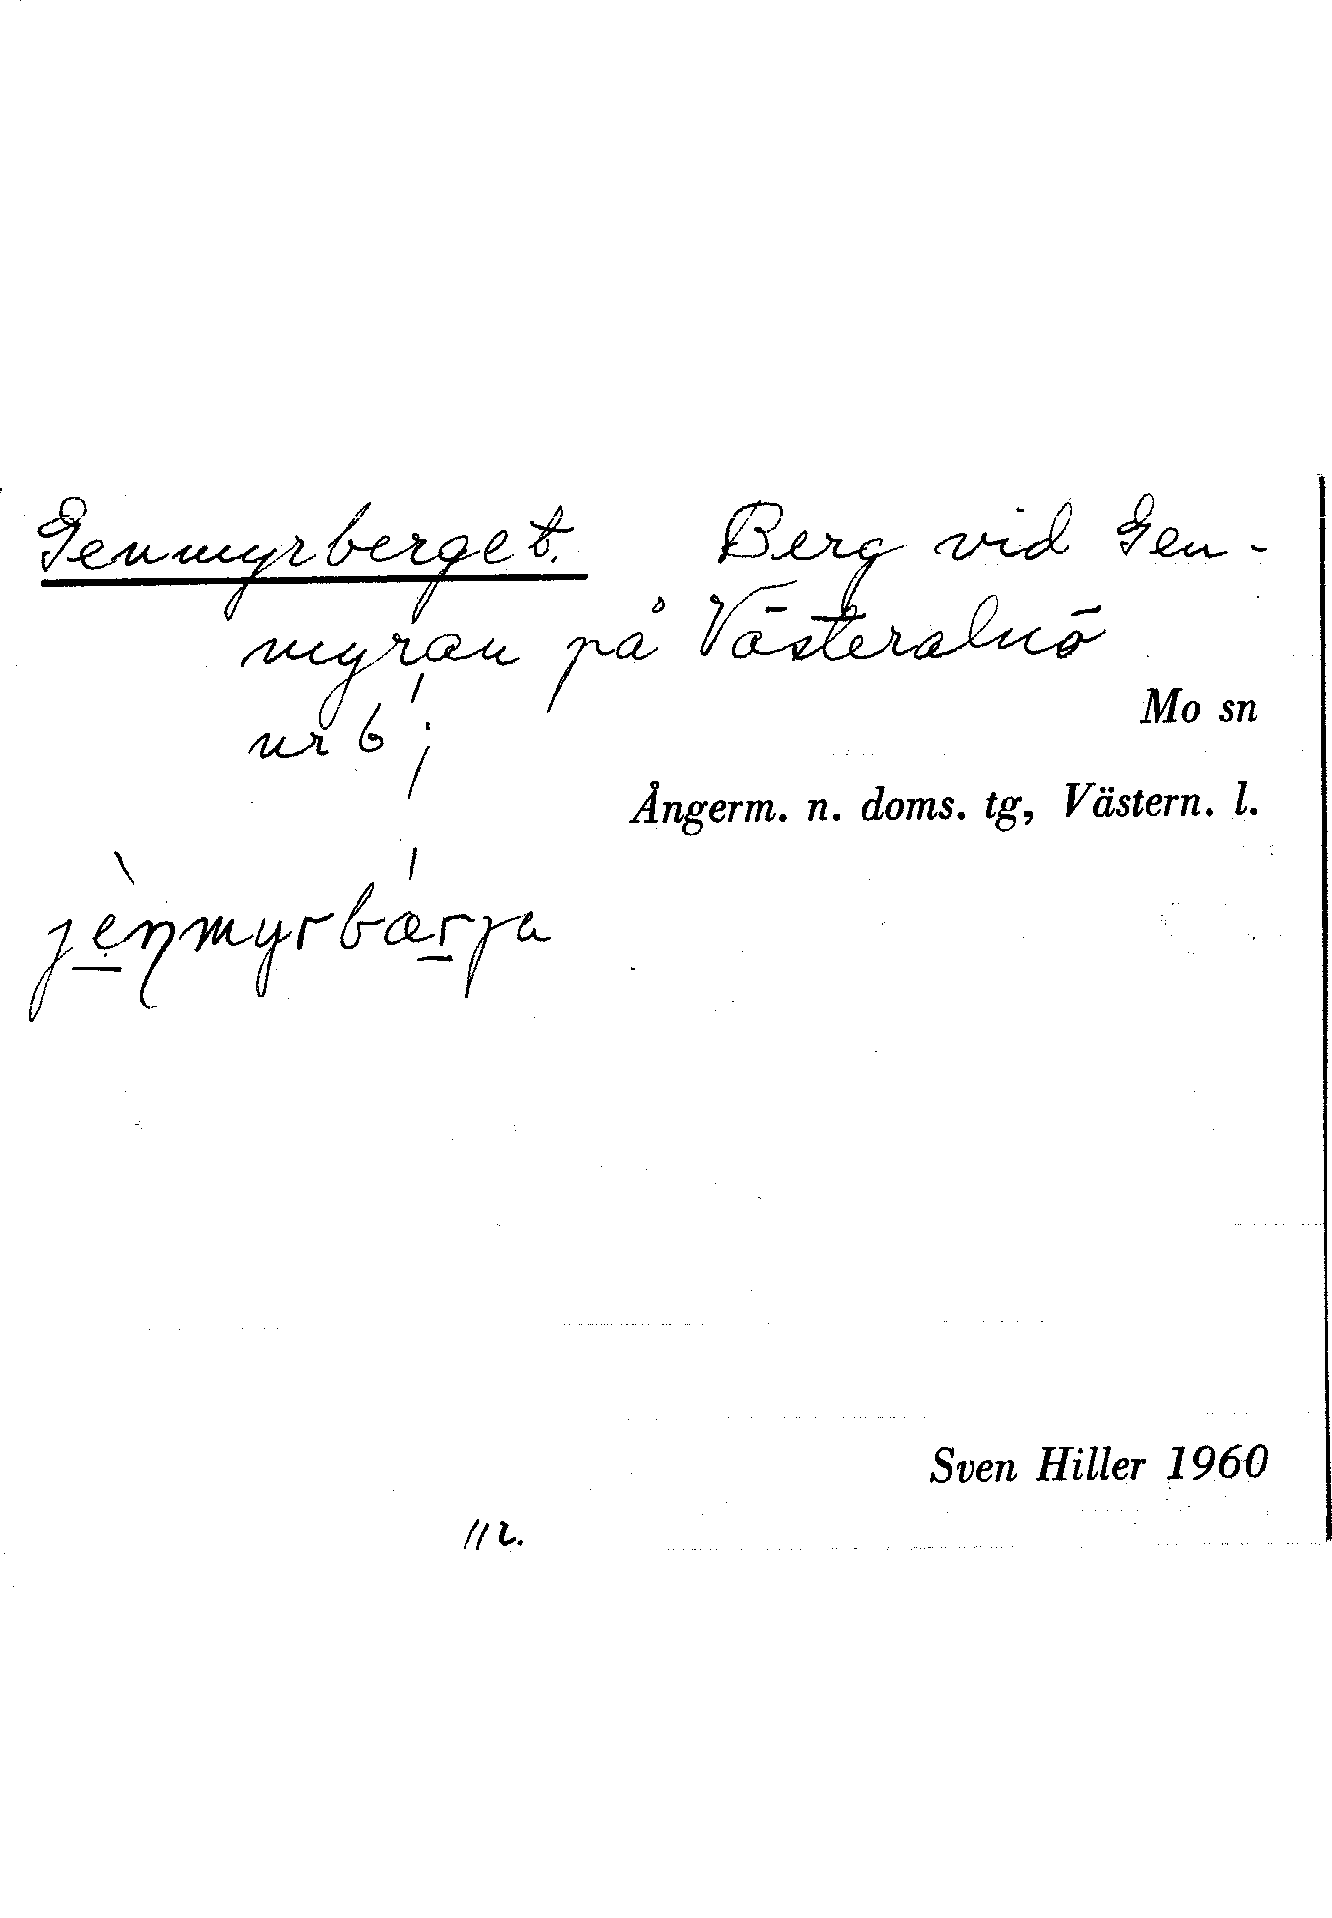 Genmyrberget. Berg vid Gen-
myran på Västeralnö
nr 6¹;
Mo sn
Ångerm. n. doms. tg, Västern. l.
jènmyrbærja
Sven Hiller 1960
112.